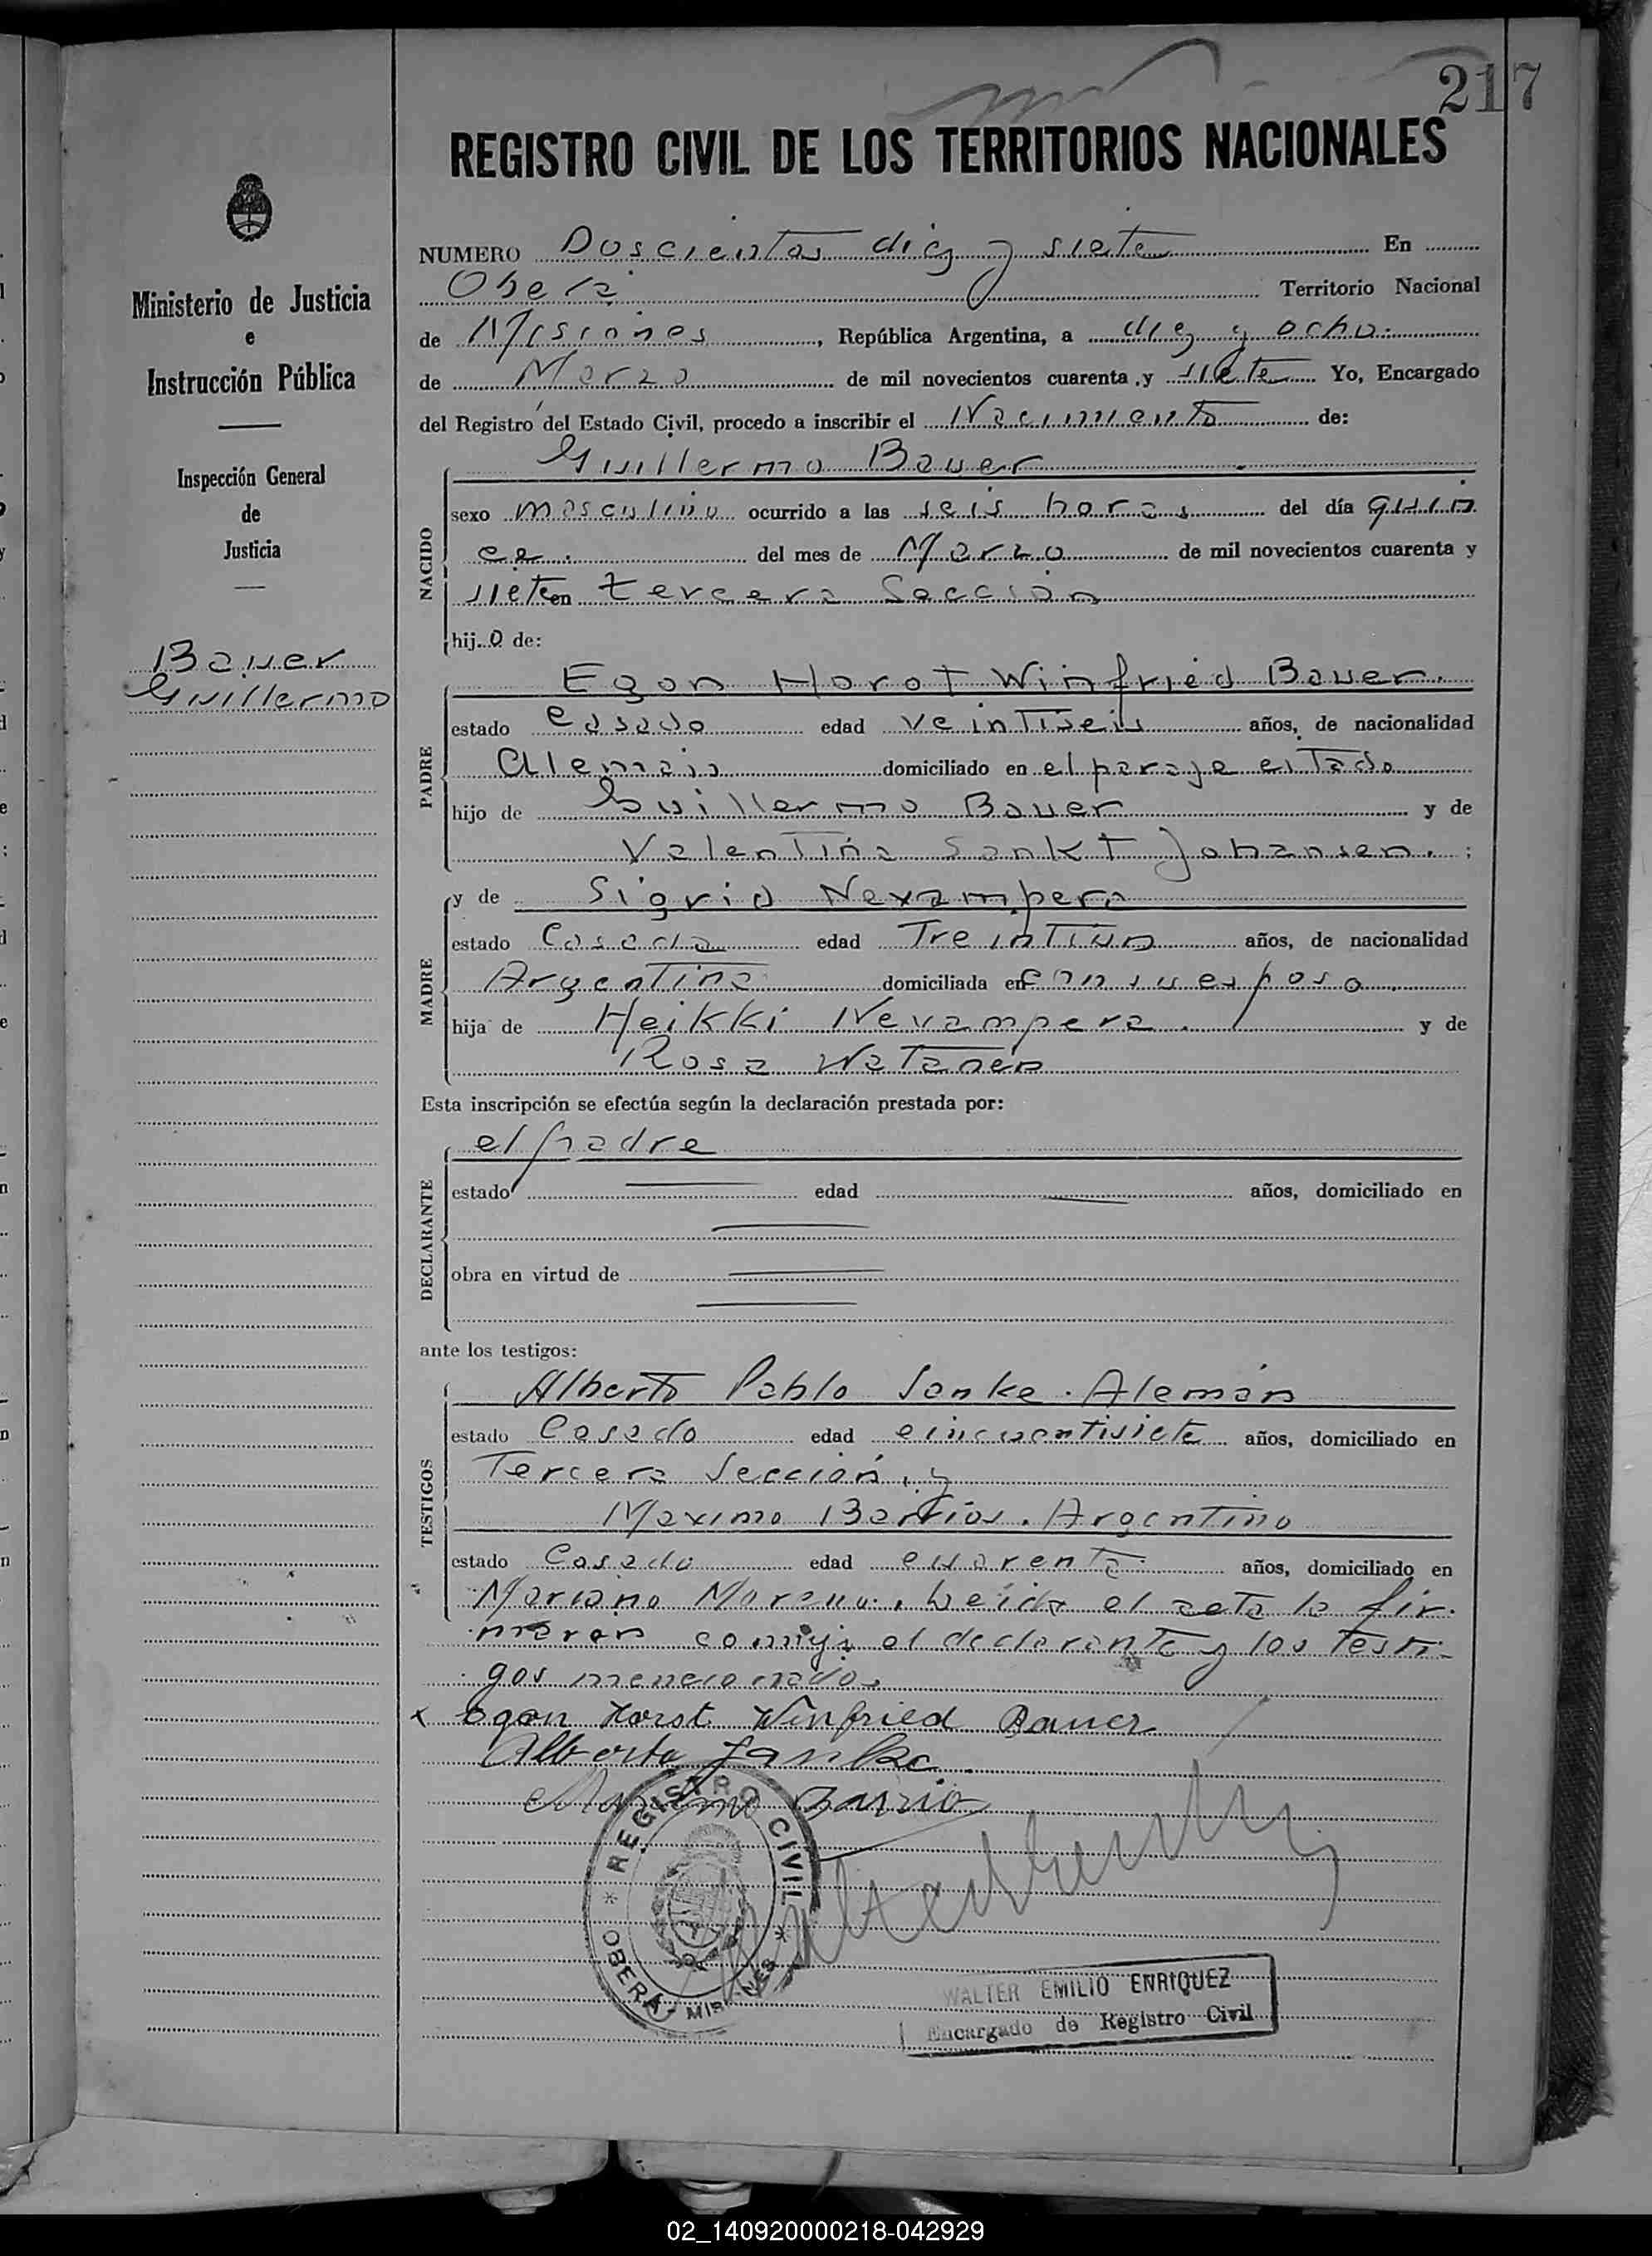 217
REGISTRO CIVIL DE LOS TERRITORIOS NACIONALES
Ministerio de Justicia
e
Instrucción Pública
Inspección General
de
Justicia
Bauer
Guillermo
NUMERO Doscientos diez y siete En
Oberá Territorio Nacional
de Misiones, República Argentina, a diez y ocho
de Marzo de mil novecientos cuarenta y siete Yo, Encargado
del Registro del Estado Civil, procedo a inscribir el Nacimiento de:
Guillermo Bauer
NACIDO
sexo masculino ocurrido a las seis horas del día quin
ce. del mes de Marzo de mil novecientos cuarenta y
siete en tercera Sección
hijo de:
Egon Horst Winfried Bauer.
PADRE
estado casado edad veintiseis años, de nacionalidad
Alemán domiciliado en el paraje citado
hijo de Guillermo Bauer y de
Valentina Sankt Johansen. ;
MADRE
y de Sigrid Nevampera
estado Casada edad Treintiun años, de nacionalidad
Argentina domiciliada en con su esposo
hija de Heikki Nevampera. y de
Rosa Watanen
Esta inscripción se efectúa según la declaración prestada por:
DECLARANTE
el padre
estado edad años, domiciliado en
obra en virtud de
ante los testigos:
TESTIGOS
Alberto Pablo Janke. Alemán
estado Casado edad cincuentisiete años, domiciliado en
Tercera Sección, y
Maximo Barrios. Argentino
estado Casado edad cuarenta años, domiciliado en
Mariano Moreno. Leida el acta la fir-
maron conmigo el declarante y los testi-
gos mencionados
x Egon Horst Winfried Bauer
Alberto Janke
Maximo Barrio
REGISTRO CIVIL
OBERÁ - MISIONES
WALTER EMILIO ENRIQUEZ
Encargado de Registro Civil
02_140920000218-042929